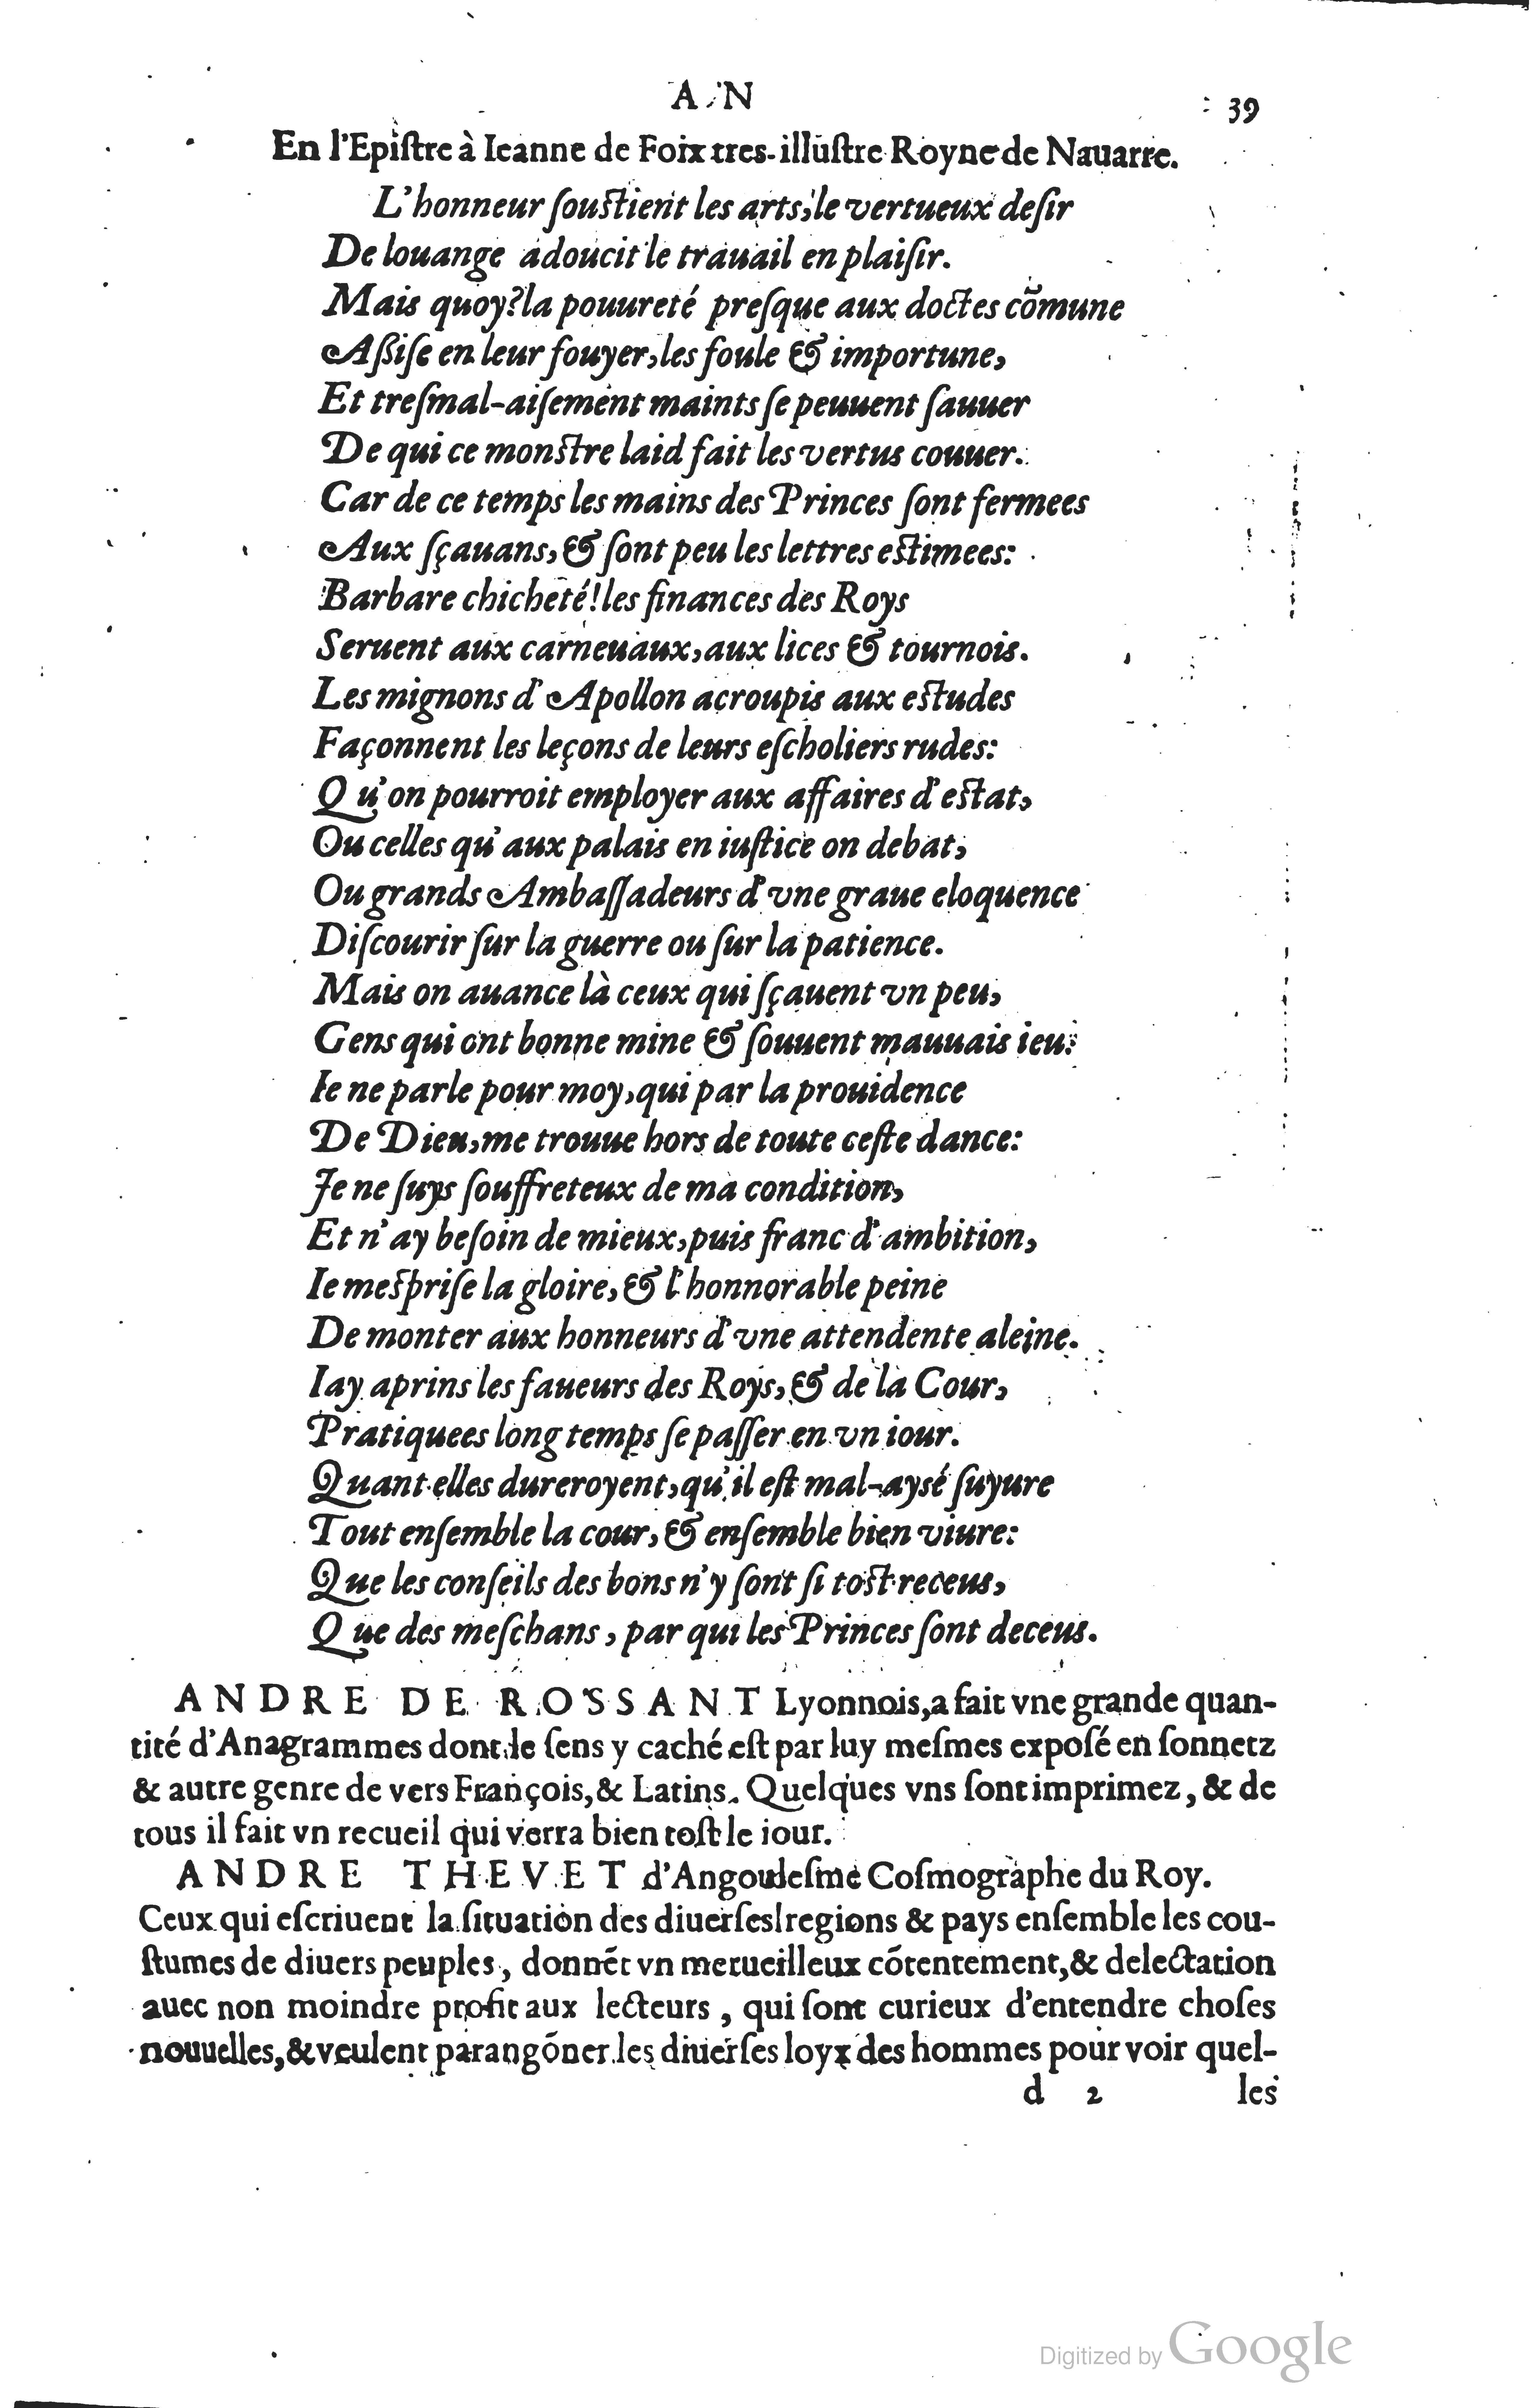 A N
39
En l'Epiſtre à Ieanne de Foix tres-illuſtre Royne de Nauarre.
L'honneur ſouſtient les arts, le vertueux deſir
De louange adoucit le trauail en plaiſir.
Mais quoy? la pouureté preſque aux doctes cõmune
Aßiſe en leur fouyer, les foule & importune,
Et treſmal-aiſement maints ſe peuuent ſauuer
De qui ce monſtre laid fait les vertus couuer.
Car de ce temps les mains des Princes ſont fermees
Aux ſçauans, & ſont peu les lettres eſtimees:
Barbare chicheté! les finances des Roys
Seruent aux carneuaux, aux lices & tournois.
Les mignons d'Apollon acroupis aux eſtudes
Façonnent les leçons de leurs eſcholiers rudes:
Qu'on pourroit employer aux affaires d'eſtat,
Ou celles qu'aux palais en iuſtice on debat,
Ou grands Ambaſſadeurs d'vne graue eloquence
Diſcourir ſur la guerre ou ſur la patience.
Mais on auance là ceux qui ſçauent vn peu,
Gens qui ont bonne mine & ſouuent mauuais ieu.
Ie ne parle pour moy, qui par la prouidence
De Dieu, me trouue hors de toute ceſte dance:
Je ne ſuys ſouffreteux de ma condition,
Et n'ay beſoin de mieux, puis franc d'ambition,
Ie meſpriſe la gloire, & l'honnorable peine
De monter aux honneurs d'vne attendente aleine.
Iay aprins les faueurs des Roys, & de la Cour,
Pratiquees long temps ſe paſſer en vn iour.
Quant elles dureroyent, qu'il eſt mal-aysé ſuyure
Tout enſemble la cour, & enſemble bien viure:
Que les conſeils des bons n'y ſont ſi toſt receus,
Que des meſchans, par qui les Princes ſont deceus.
ANDRE DE ROSSANT Lyonnois, a fait vne grande quan-
tité d'Anagrammes dont le ſens y caché eſt par luy meſmes exposé en ſonnetz
& autre genre de vers François, & Latins. Quelques vns ſont imprimez, & de
tous il fait vn recueil qui verra bien toſt le iour.
ANDRE THEVET d'Angouleſme Coſmographe du Roy.
Ceux qui eſcriuent la ſituation des diuerſes regions & pays enſemble les cou-
ſtumes de diuers peuples, donnẽt vn merueilleux cõtentement, & delectation
auec non moindre profit aux lecteurs, qui ſont curieux d'entendre choſes
nouuelles, & veulent parangõner les diuerſes loyx des hommes pour voir quel-
d 2 les
Digitized by Google